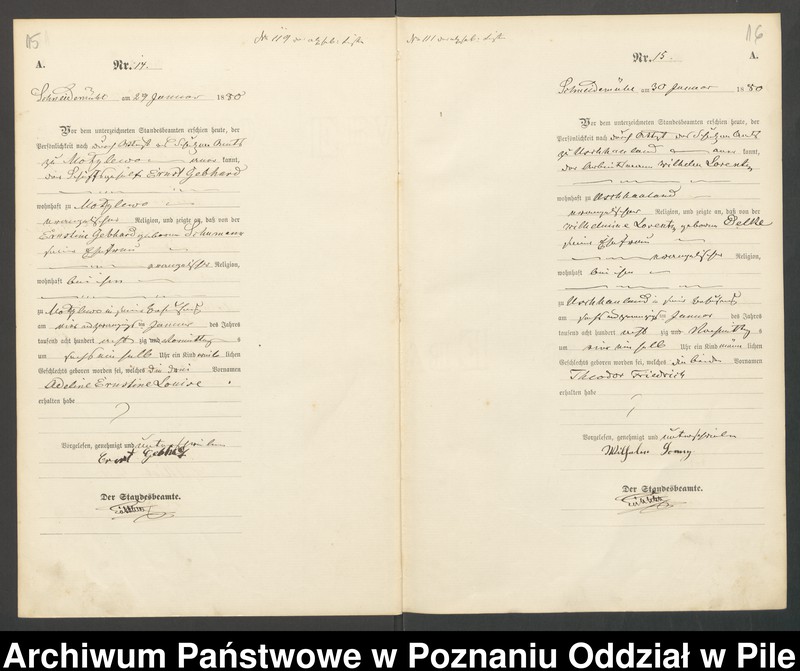 15
A.
Nr. 14.
Schneidemühl am 29 Januar 1880
Vor dem unterzeichneten Standesbeamten erschien heute, der
Persönlichkeit nach durch Attest des Schulzen Amts
zu Motylewo kannt,
der Schiffsgehilfe Ernst Gebhard
wohnhaft zu Motylewo
evangelischer Religion, und zeigte an, daß von der
Ernstine Gebhard geborenen Schumann
seine Ehefrau
evangelischer Religion,
wohnhaft bei ihm
zu Motylewo in seiner Behausung
am vier und zwanzigsten Januar des Jahres
tausend acht hundert acht zig und Vormittag s
um sechs ein halb Uhr ein Kind weib lichen
Geschlechts geboren worden sei, welches die drei Vornamen
Adeline Ernstine Louise
erhalten habe
Vorgelesen, genehmigt und unterschrieben
Ernst Gebhard
Der Standesbeamte.
16
A.
Nr. 15.
Schneidemühl am 30 Januar 1880
Vor dem unterzeichneten Standesbeamten erschien heute, der
Persönlichkeit nach durch Attest des Schulzen Amts
zu Uschhauland kannt,
der Arbeitsmann Wilhelm Lorentz
wohnhaft zu Uschhauland
evangelischer Religion, und zeigte an, daß von der
Wilhelmine Lorentz geborenen Belke
seine Ehefrau
evangelischer Religion,
wohnhaft bei ihm
zu Uschhauland in seiner Behausung
am sechs und zwanzigsten Januar des Jahres
tausend acht hundert acht zig und Vormittag s
um ein halb Uhr ein Kind männ lichen
Geschlechts geboren worden sei, welches die beiden Vornamen
Theodor Friedrich
erhalten habe
Vorgelesen, genehmigt und unterschrieben
Wilhelm
Der Standesbeamte.
Archiwum Państwowe w Poznaniu Oddział w Pile